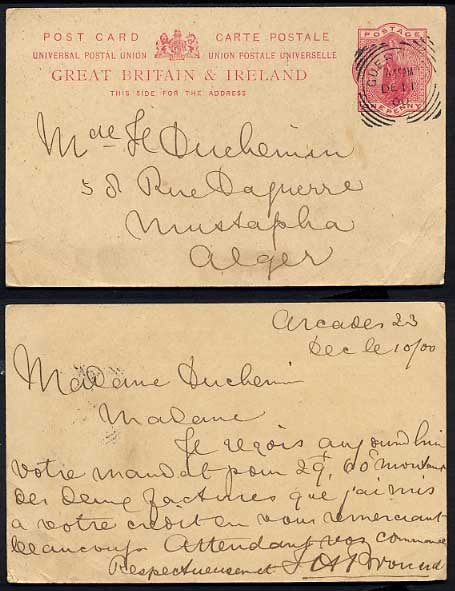 POST CARD CARTE POSTALE
UNIVERSAL POSTAL UNION UNION POSTALE UNIVERSELLE
GREAT BRITAIN & IRELAND
THIS SIDE FOR THE ADDRESS
POSTAGE
ONE PENNY
GUER
DE 11
00
Mde Duchemin
58 Rue Daguerre
Mustapha
Alger
Arcades 23
Dec le 10/00
Madame Duchemin
Madame
Je reçois aujourdhui
votre mandat pour 29f, 60c montant
des deux factures que j'ai mis
a votre credit en vous remerciant
beaucoup Attendant vos commande
Respectueusement